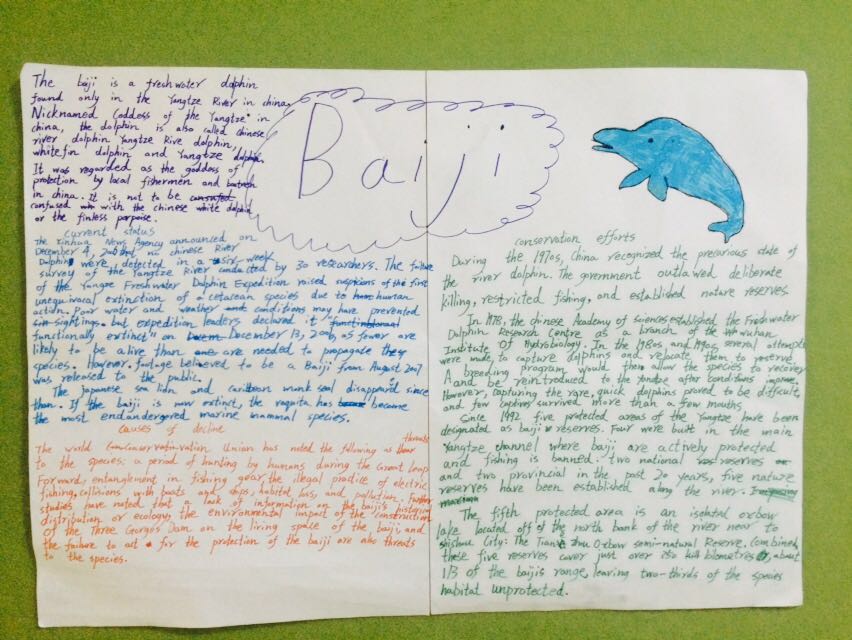 The baiji is a freshwater dolphin
found only in the Yangtze River in china,
Nicknamed Goddess of the Yangtze" in
china, the dolphin is also called chinese
river dolphin Yangtze Rive dolphin,
whitefin dolphin and Yangtze dolphin.
It was regarded as the goddess of
protection by local fishermen and
in china. It is not to be
confused with the chinese white dolphin
or the finless porpoise.
Baiji
current status
the Xinhua News Agency announced on
December 4, no chinese River
Dolphin were detected in a six-week
survey of the Yangtze River conducted by 30 researchers. The failure
of the Yangze Freshwater Dolphin Expedition raised suspicions of the first
unequivocal extinction of a cetacean species due to human
action. Poor water and weather conditions may have prevented
sightings. but expedition leaders declared it
functionally extinct" on December 13, 2006, as fewer are
likely to be alive than are needed to propagate the
species. However. footage believed to be a Baiji from August 2007
was released to the public.
The Japanese sea lidn and monk seal disappeard since
than. If the baiji is now extinct, the vaquita has become
the most endandgered marine mammal species.
causes of decline
The world Conservation Union has noted the following as threats
to the species: a period of hunting by humans during the Great Leap
Forward, entanglement in fishing gear, the illegal practice of electric
fishing, collisions with boats and ships, habitat loss, and pollution. Further
studies have noted that a lack of information on the baiji's
distribution or ecology, the environmental impact of the construction
of the Three Gorges Dam on the living space of the baiji, and
the failure to act for the protection of the baiji are also threats
to the species.
conservation efforts
During the 1970s, China recognized the precarious state of
the river dolphin. The government outlawed deliberate
killing, restricted fishing, and established nature reserves.
In 1978, the chinese Academy of sciences established the Freshwater
Dolphin Research Centre as a branch of the wuhan
Institute of Hydrobiology. In the 1980s and 1990s, several attempts
were made to capture dolphins and relocate them to reserve.
A breeding program would then allow the species to recover
and be reintroduced to the Yangtze after conditions improve.
However, capturing the rare, quick dolphins proved to be difficult,
and few captives survived more than a few mouths.
Since 1992 five protected areas of the Yangtze have been
designated as baiji reserves. Four were built in the main
Yangtze channel where baiji are actively protected
and fishing is banned: two national reserves
and two provincial in the past 20 years, five nature
reserves have been established along the river.
The fifth protected area is an isolated oxbow
lake located off of the north bank of the river near to
shishou City: The Tiane Zhu Oxbow semi-natural Reserve. Combined,
these five reserves cover just over kilometres, about
1/3 of the baijis range, leaving two-thirds of the species
habitat unprotected.